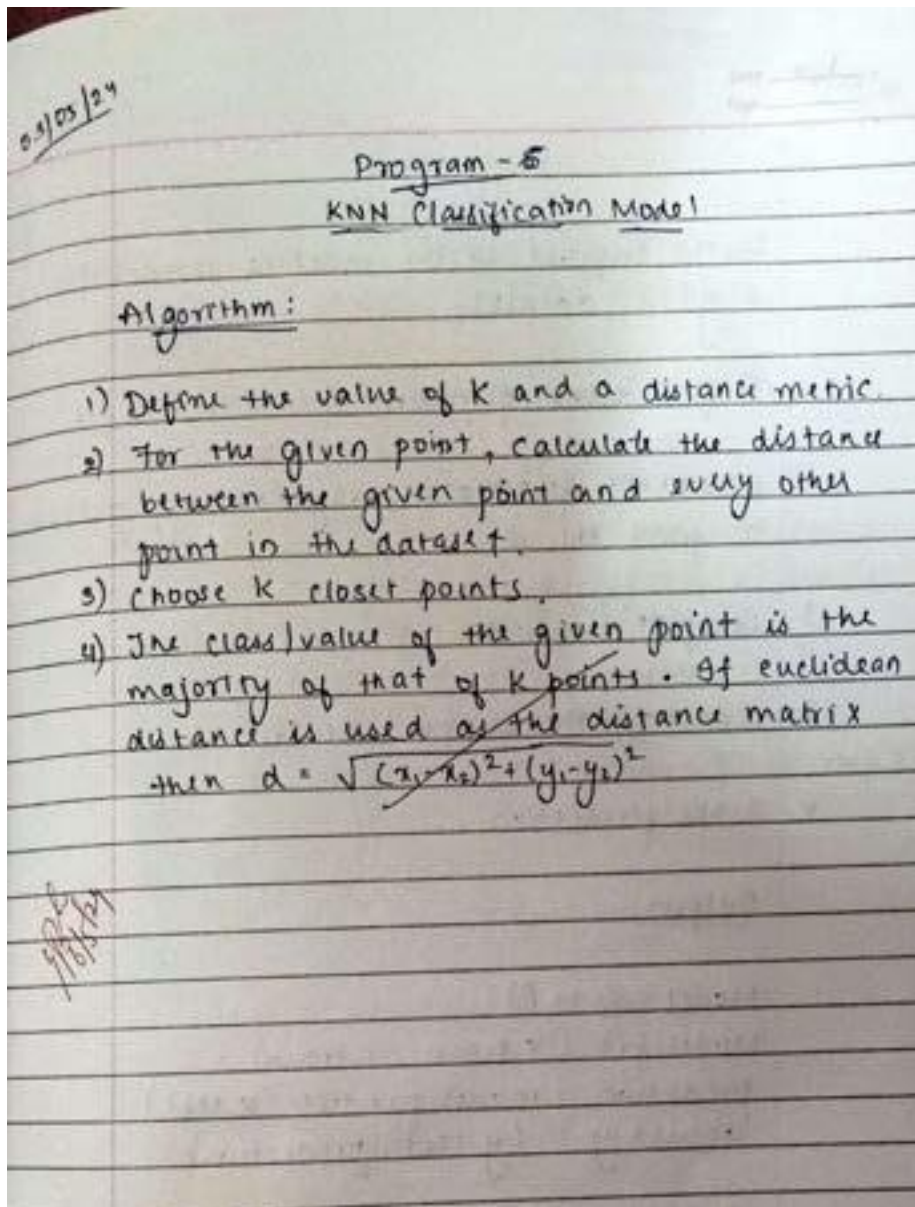 03/05/24
Program - 5
KNN Classification Model
Algorithm :
1) Define the value of K and a distance metric.
2) For the given point, calculate the distance
between the given point and every other
point in the dataset.
3) Choose K closet points.
4) The class/value of the given point is the
majority of that of K points. If euclidean
distance is used as the distance matrix
then d = √(x₁-x₂)²+(y₁-y₂)²